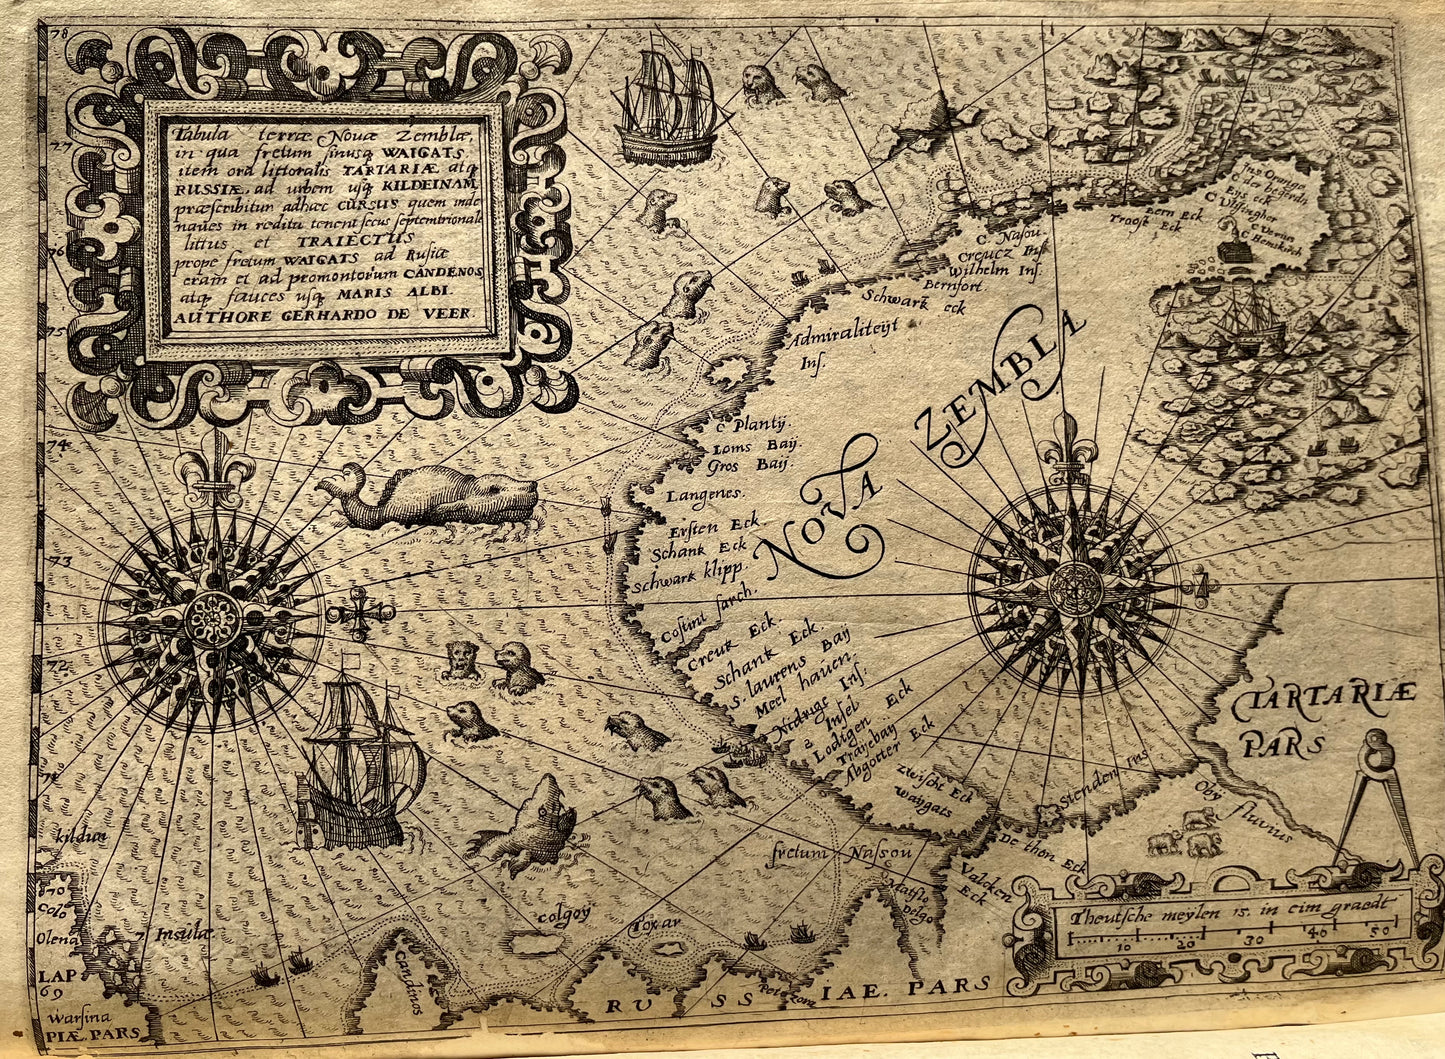 78
77
76
75
74
73
72
71
Tabula terræ Novæ Zemblæ,
in qua fretum sinusq WAIGATS
item ora littoralis TARTARIÆ atq
RUSSIÆ, ad urbem usq KILDEINAM
præscribitur adhæc CURSUS quem inde
naues in reditu tenent secus septemtrionale
littus et TRAIECTUS
prope fretum WAIGATS ad Rusiæ
oram et ad promontorum CANDENOS
atq fauces usq MARIS ALBI.
AUTHORE GERHARDO DE VEER.
NOVA ZEMBLA
Ins Orange
C der begerda
Eys eck
C Vlissingher
C Hemskirck
Yzern Eck
Troost Eck
C Nasou
Creucz Ins
Wilhelm Ins.
Bernfort
Schwartz eck
Admiraliteijt
Ins.
C Plantij.
Loms Baij.
Gros Baij.
Langenes.
Ersten Eck
Schantz Eck
Schwartz klipp.
Costint sarch.
Creutz Eck
Schantz Eck
S. laurens Baij
Meel hauen.
Nidrige Ins.
2 Insel
Lodigen Eck
Traenbay
Abgotter Eck
zwischt Eck
Waygats
Stenden Ins
De thon Eck
Valcken
Eck
fretum Nassou
Matslo
Delgo
Oby fluvius
TARTARIÆ
PARS
kildun
70
Colo
Olena
LAP
69
Warsina
PIÆ. PARS
7 Insulæ
Candnos
Colgoy
Toxar
RUSSIAE. PARS
Theutsche meylen 15. in eim graedt
10 20 30 40 50